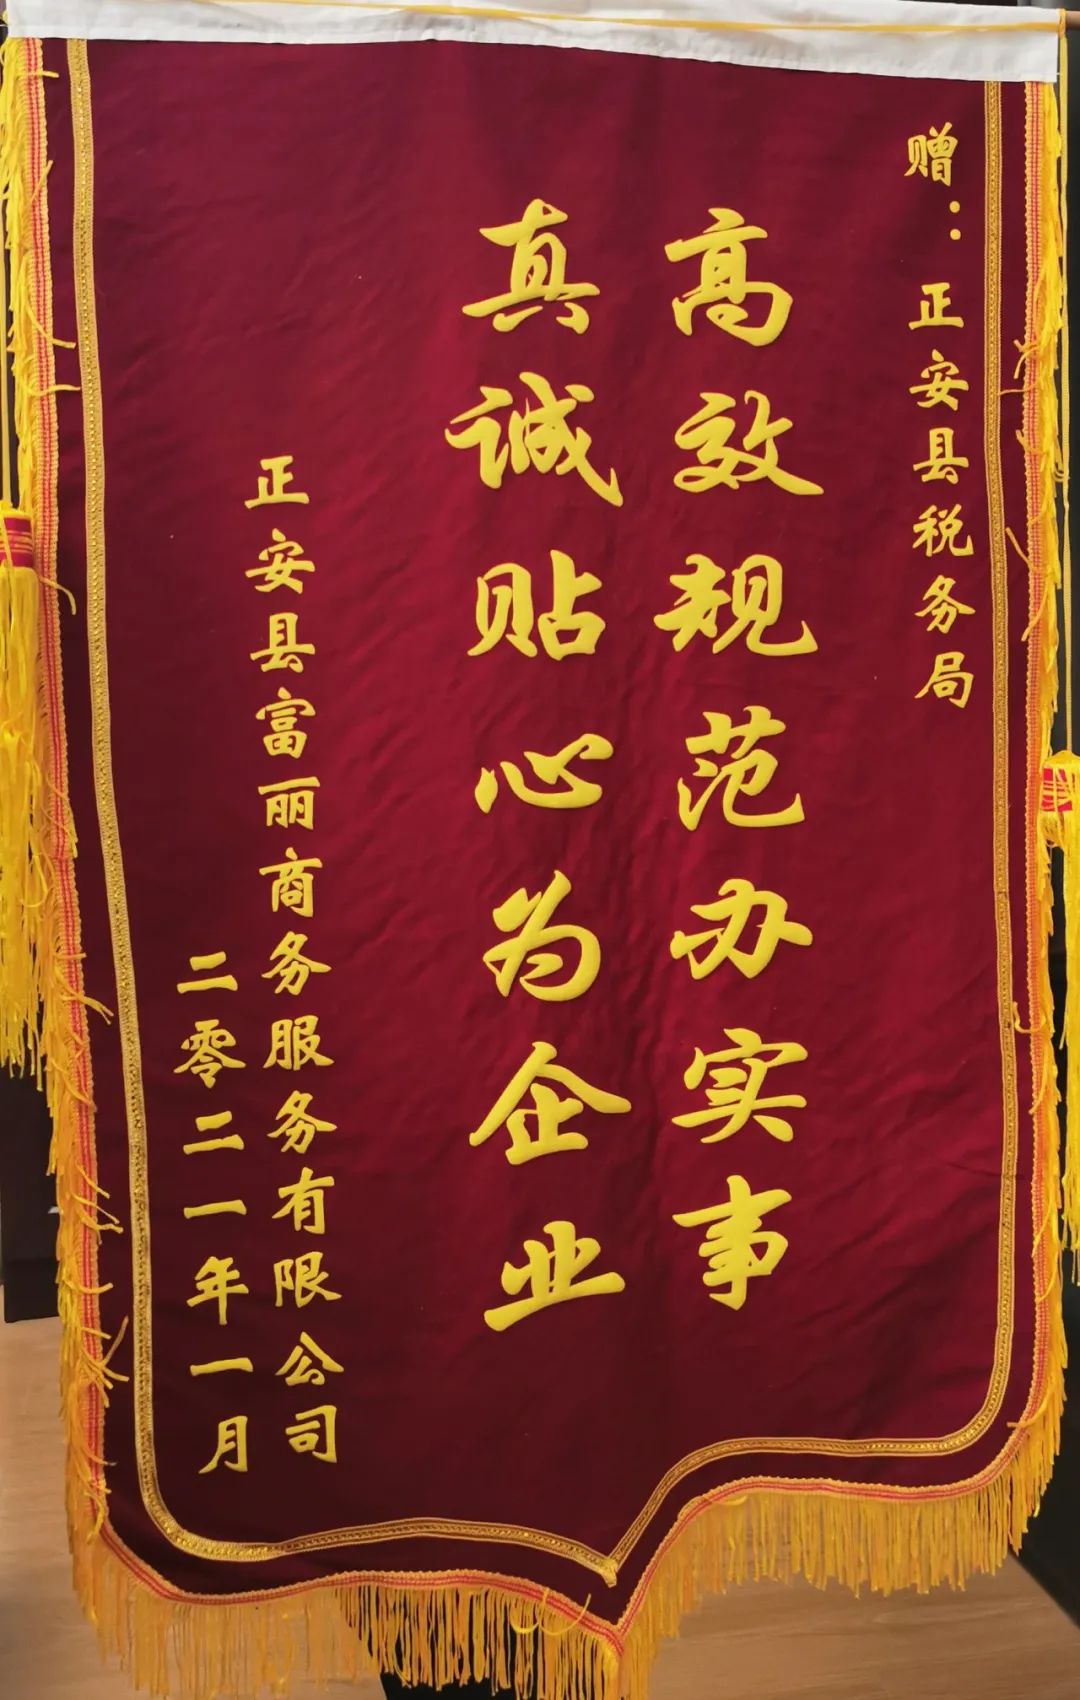 赠：正安县税务局
高效规范办实事
真诚贴心为企业
正安县富丽商务服务有限公司
二零二一年一月